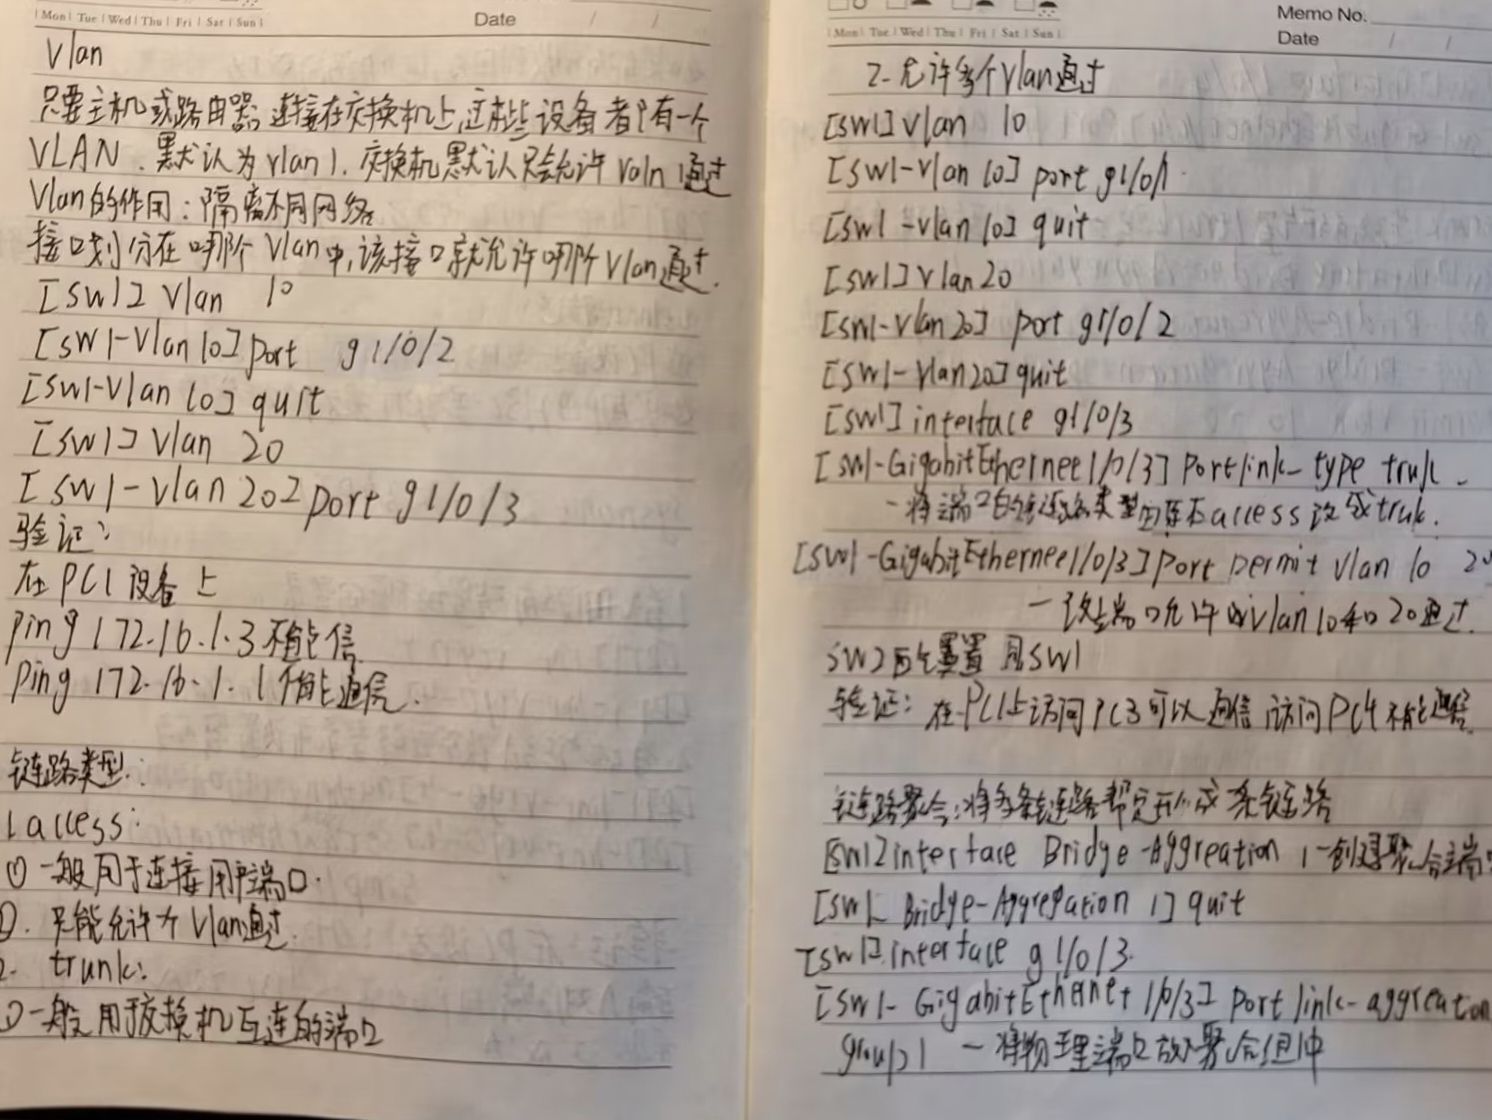 Mon Tue Wed Thu Fri Sat Sun
Date / /
Vlan
只要主机或路由器,连接在交换机上,这些设备都有一个
VLAN.默认为vlan1.交换机默认只会允许valn1通过
Vlan的作用:隔离不同网络
接口划分在哪个Vlan中,该接口就允许哪个Vlan通过.
[SW1] Vlan 10
[SW1-Vlan10] port g1/0/2
[SW1-Vlan10] quit
[SW1] Vlan 20
[SW1-Vlan20] port g1/0/3
验证:
在PC1设备上
Ping 172.16.1.3不能通信
Ping 172.16.1.1不能通信.
链路类型:
1 access:
①一般用于连接用户端口.
②.只能允许个Vlan通过.
2. trunk:
①一般用于交换机互连的端口
Memo No.
Mon Tue Wed Thu Fri Sat Sun
Date / /
2.允许多个Vlan通过
[SW1] Vlan 10
[SW1-Vlan10] port g1/0/1
[SW1-vlan10] quit
[SW1] Vlan20
[SW1-Vlan20] port g1/0/2
[SW1-Vlan20] quit
[SW1] interface g1/0/3
[SW1-GigabitEthernee1/0/3] Port link-type truk
-将端口的链路类型由原来access改成truk.
[SW1-GigabitEthernee1/0/3] Port permit vlan 10 20
-该端口允许vlan10和20通过.
SW2的配置同SW1
验证:在PC1上访问PC3可以通信访问PC4不能通信
链路聚合:将多条链路帮定形成一条链路
[SW1] interface Bridge-Aggreation 1-创建聚合端口
[SW1-Bridge-Aggregation 1] quit
[SW1] interface g1/0/3
[SW1-GigabitEthernet1/0/3] Port link-aggreation
group1 -将物理端口放入聚合组中